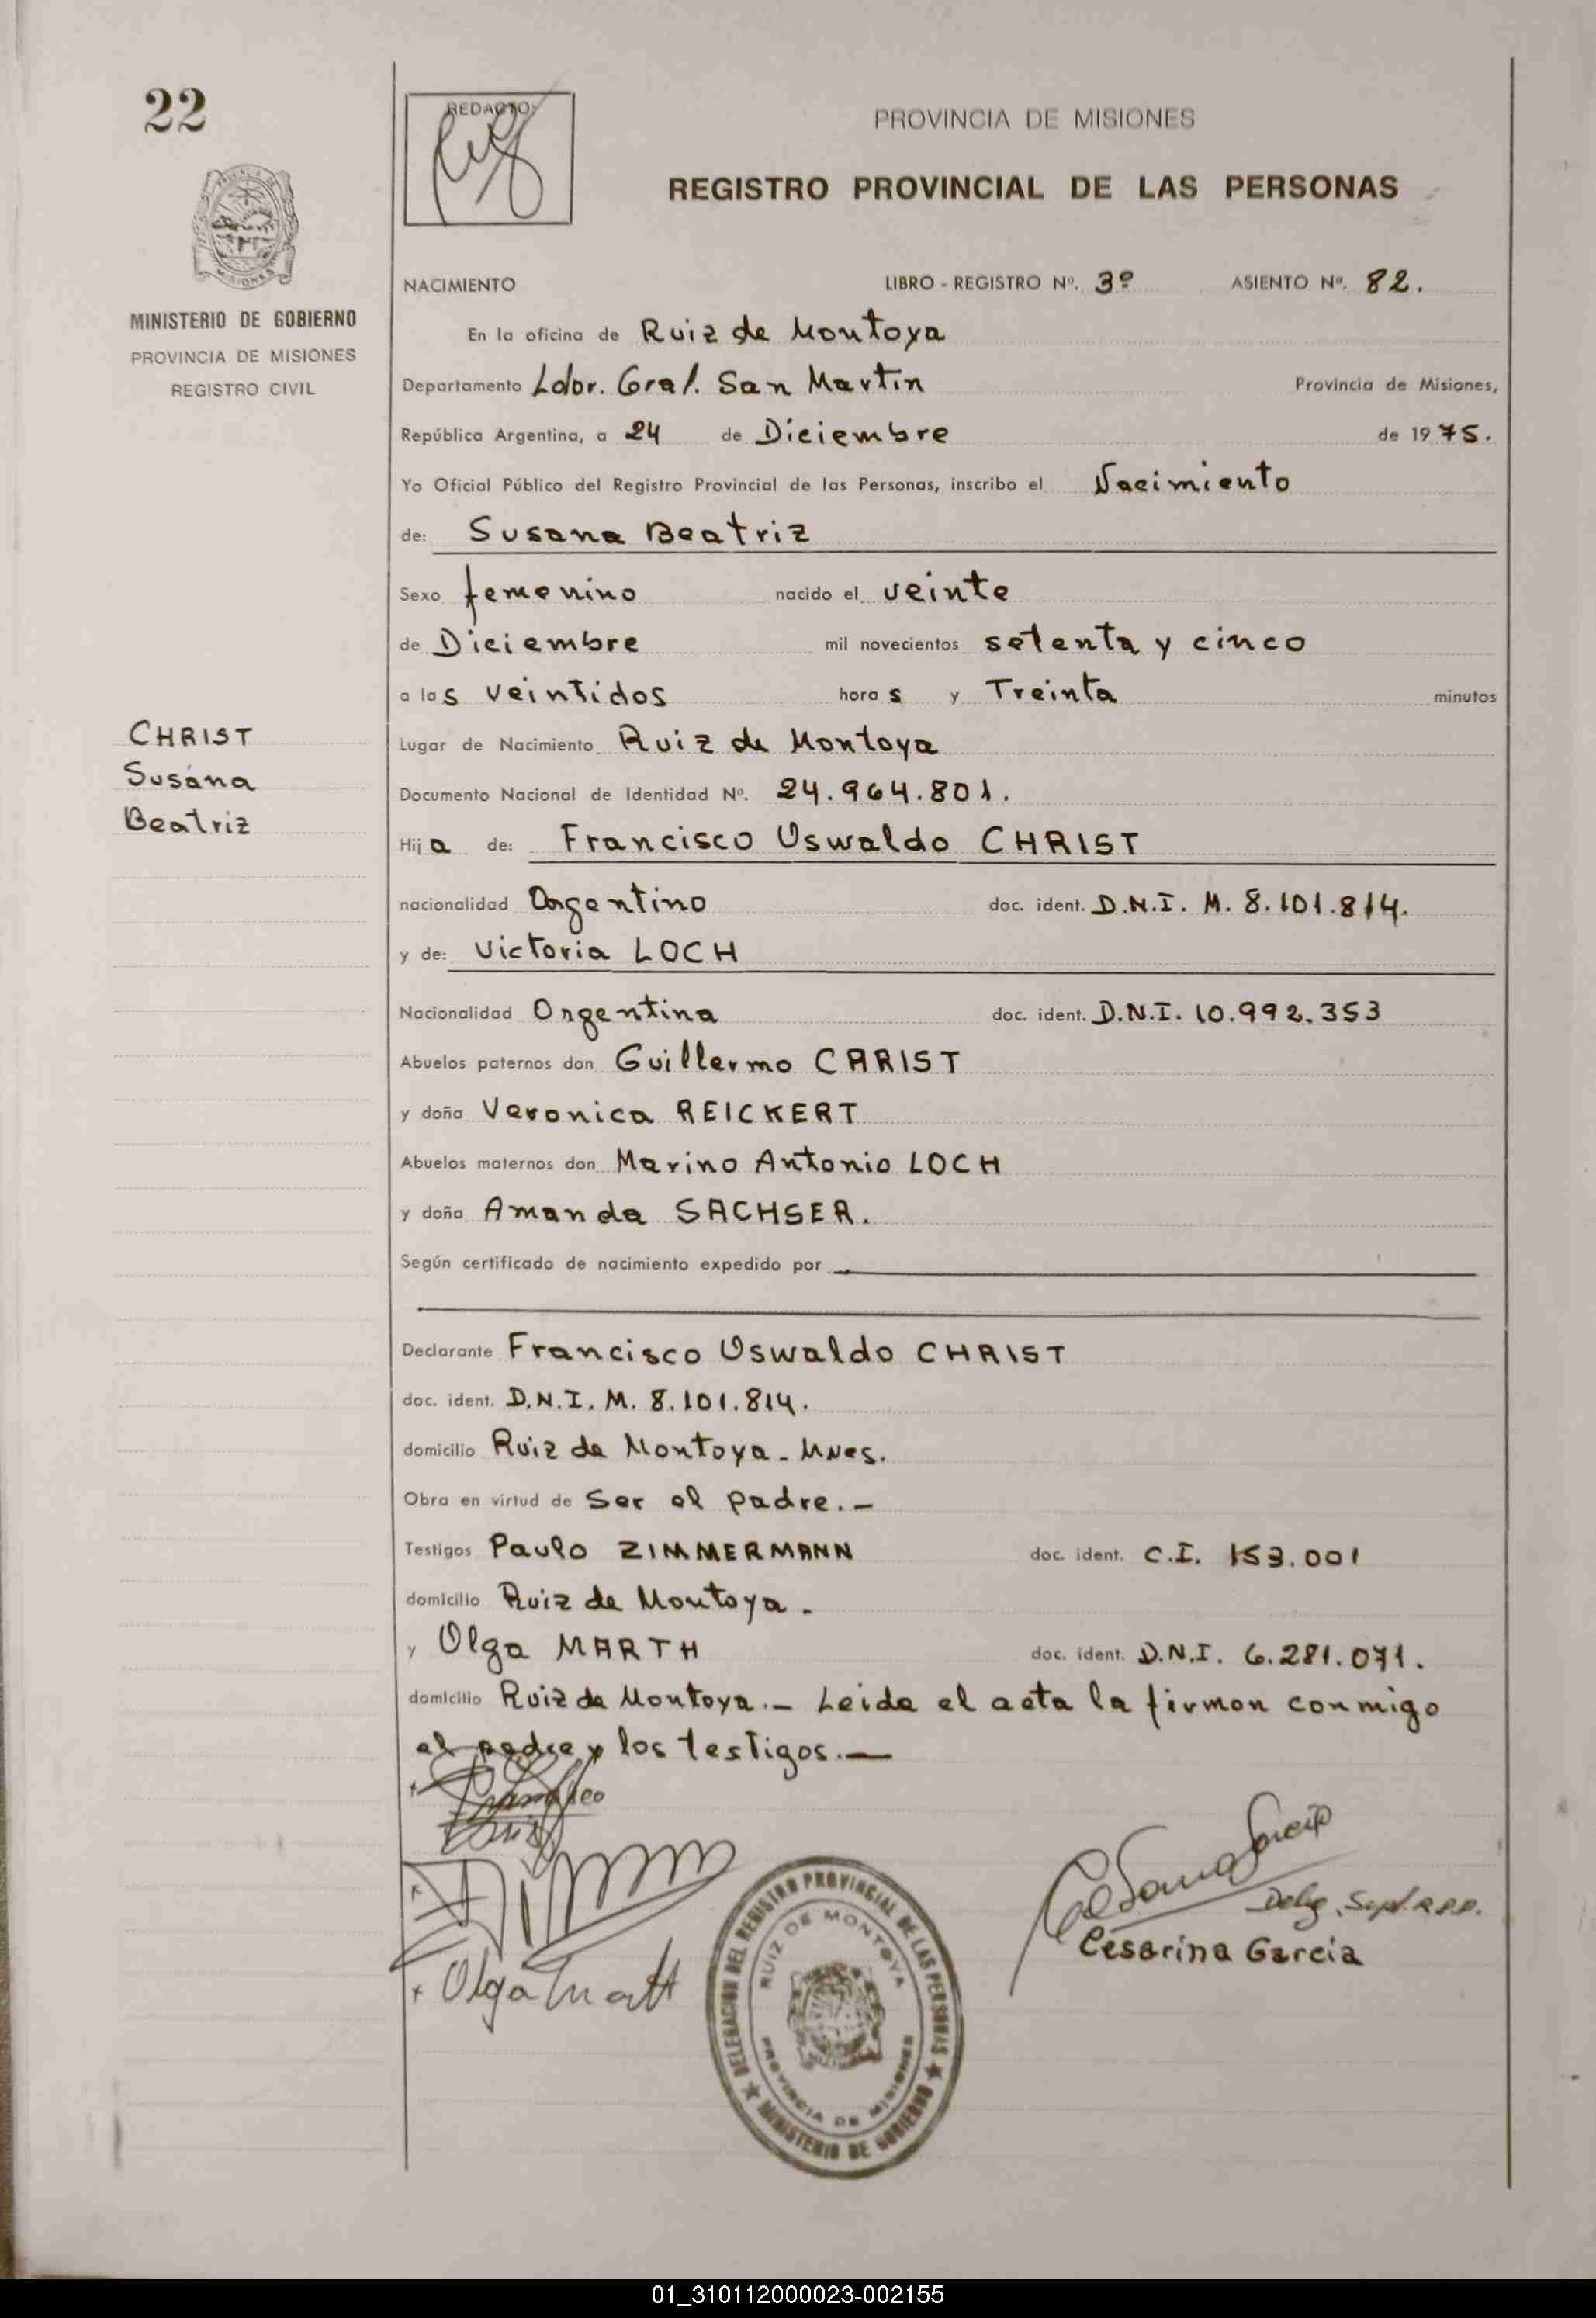 22
REDACTO:
PROVINCIA DE MISIONES
REGISTRO PROVINCIAL DE LAS PERSONAS
MISIONES
MINISTERIO DE GOBIERNO
PROVINCIA DE MISIONES
REGISTRO CIVIL
NACIMIENTO LIBRO - REGISTRO Nº. 3º ASIENTO Nº. 82.
En la oficina de Ruiz de Montoya
Departamento Ldor. Gral. San Martin Provincia de Misiones,
República Argentina, a 24 de Diciembre de 1975.
Yo Oficial Público del Registro Provincial de las Personas, inscribo el Nacimiento
de: Susana Beatriz
Sexo femenino nacido el veinte
de Diciembre mil novecientos setenta y cinco
a las veintidos horas y Treinta minutos
CHRIST
Susana
Beatriz
Lugar de Nacimiento Ruiz de Montoya
Documento Nacional de Identidad Nº. 24.964.801.
Hija de: Francisco Oswaldo CHRIST
nacionalidad Argentino doc. ident. D.N.I. M. 8.101.814.
y de: Victoria LOCH
Nacionalidad Argentina doc. ident. D.N.I. 10.992.353
Abuelos paternos don Guillermo CHRIST
y doña Veronica REICKERT
Abuelos maternos don Marino Antonio LOCH
y doña Amanda SACHSER.
Según certificado de nacimiento expedido por
Declarante Francisco Oswaldo CHRIST
doc. ident. D.N.I. M. 8.101.814.
domicilio Ruiz de Montoya - Mnes.
Obra en virtud de Ser el padre.-
Testigos Paulo ZIMMERMANN doc. ident. C.I. 153.001
domicilio Ruiz de Montoya.
y Olga MARTH doc. ident. D.N.I. 6.281.071.
domicilio Ruiz de Montoya.- Leida el acta la firman conmigo
el padre y los testigos.-
Francisco
Olga Marth
Deleg. Supl. R.P.P.
Cesarina Garcia
DELEGACION DEL REGISTRO PROVINCIAL DE LAS PERSONAS
RUIZ DE MONTOYA
PROVINCIA DE MISIONES
MINISTERIO DE GOBIERNO
01_310112000023-002155